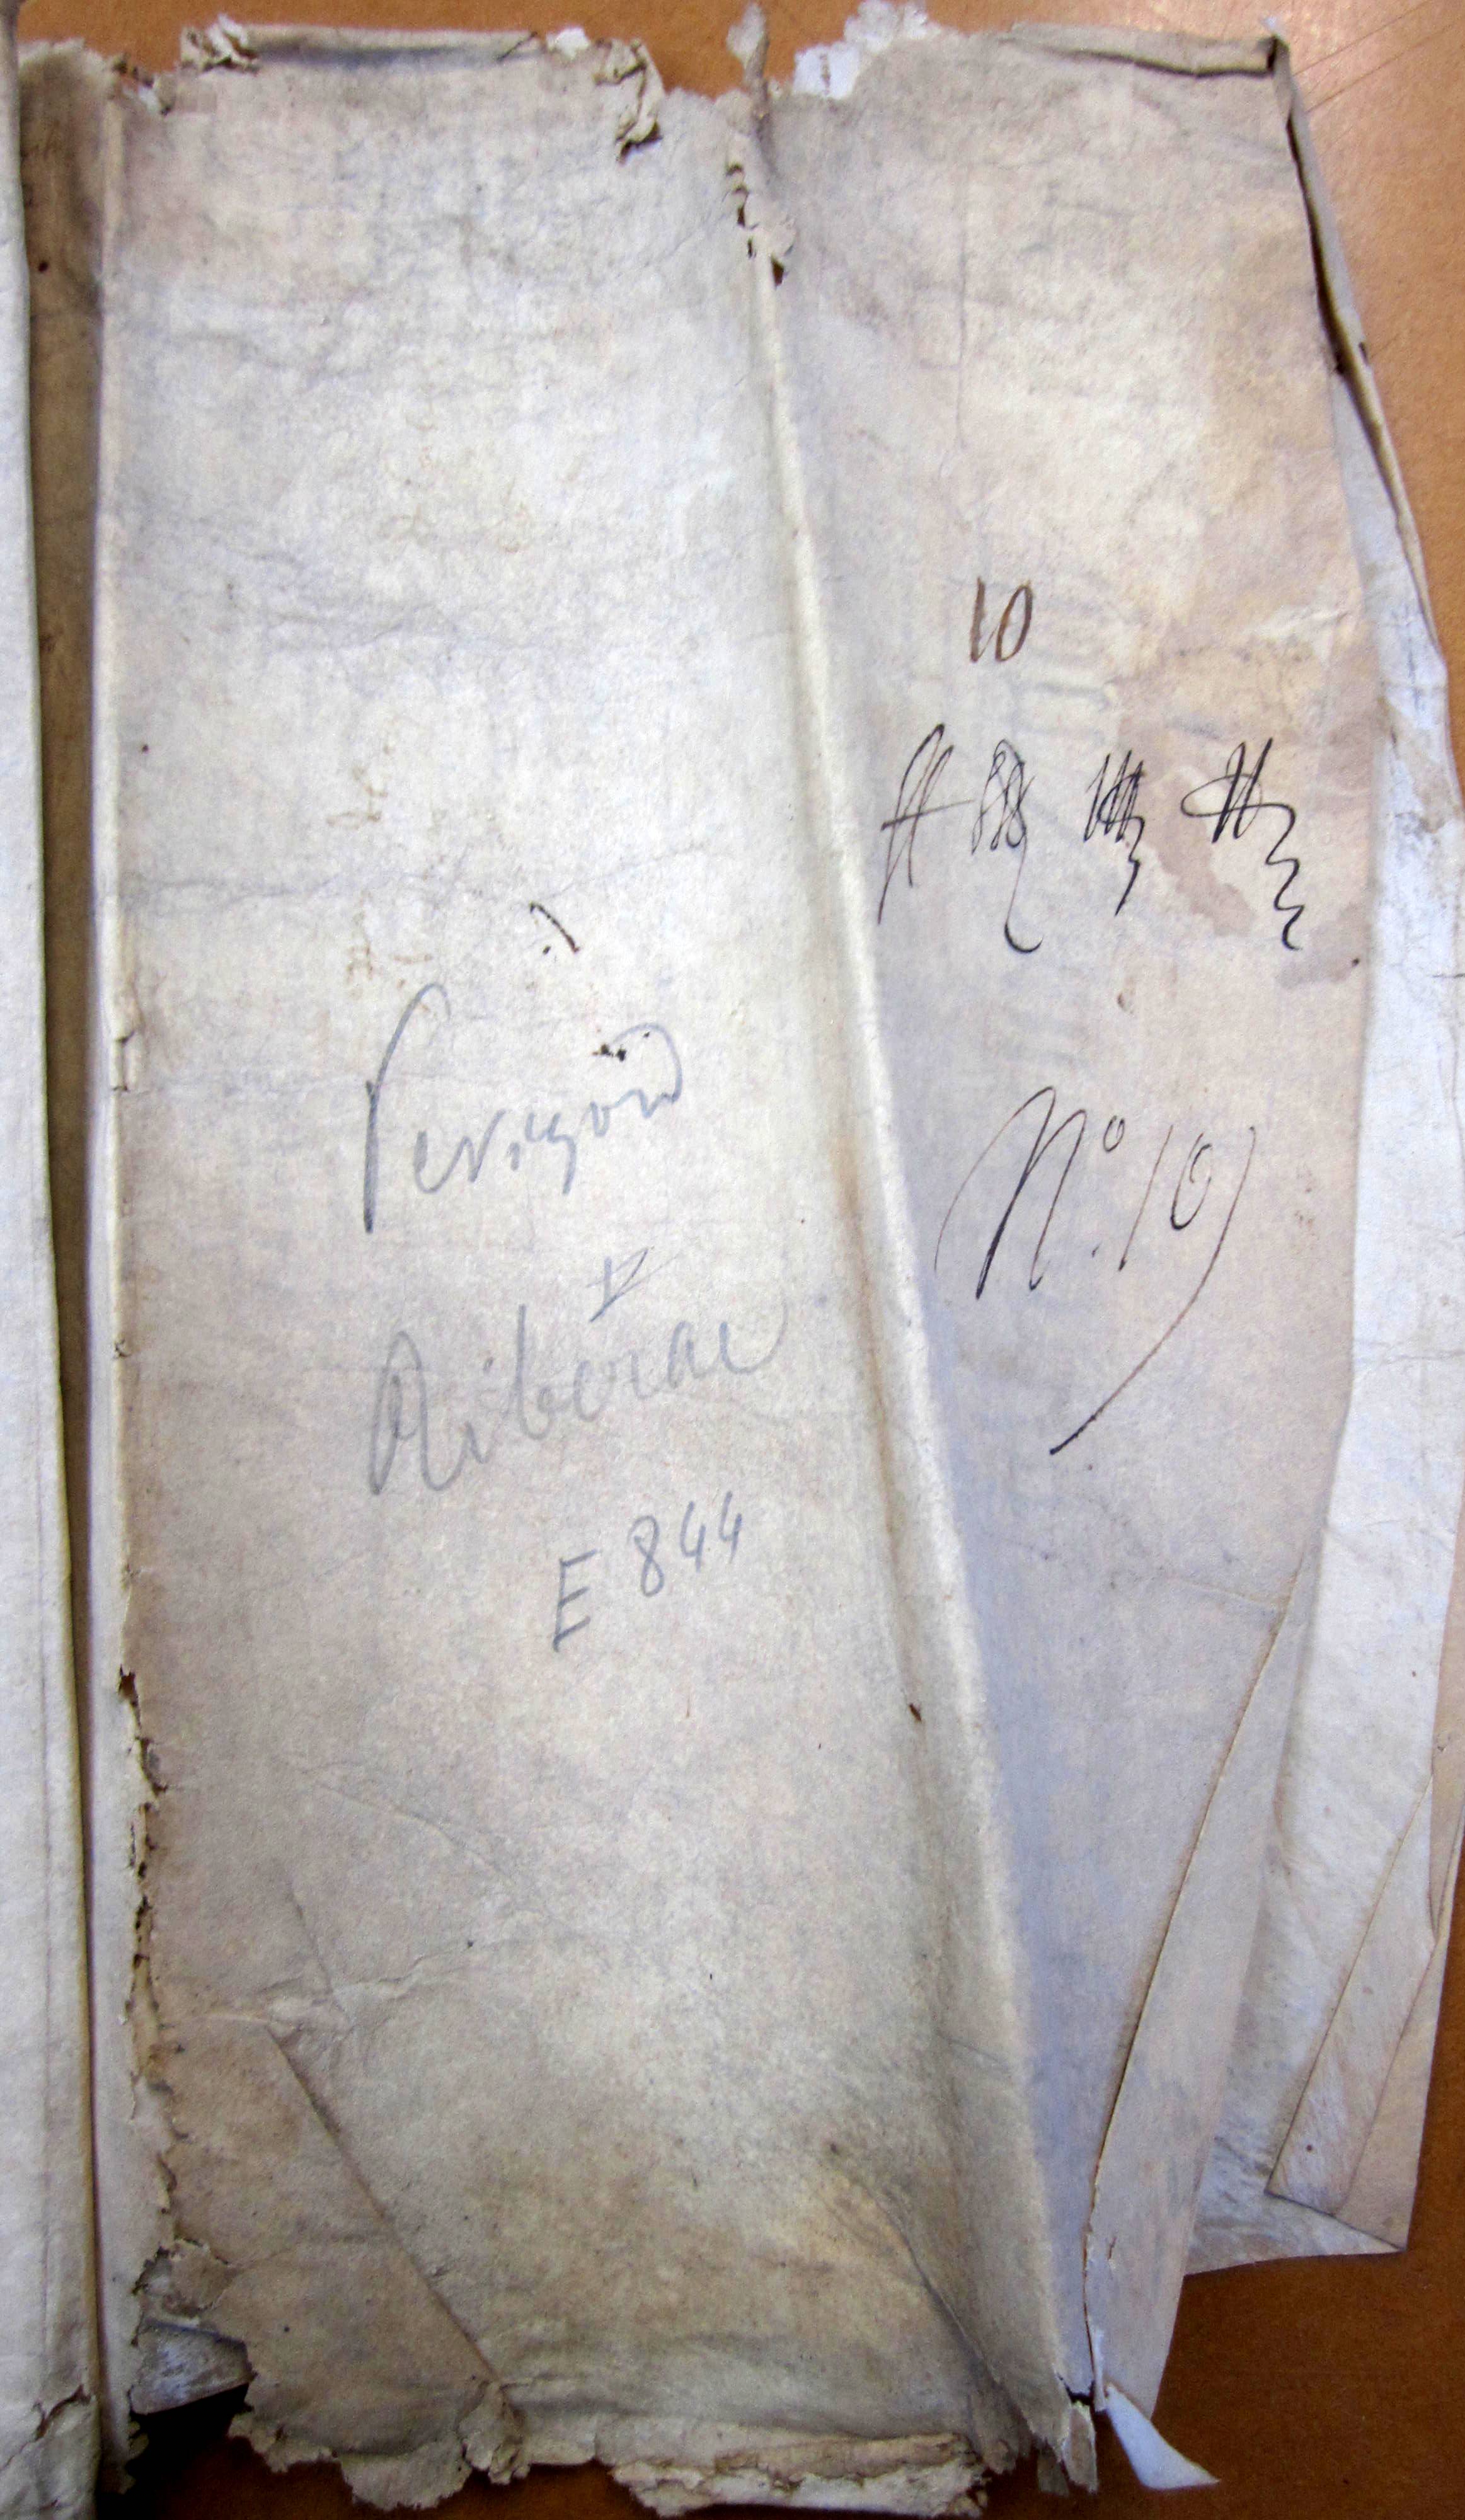 Perigord
V
Riberac
E 844
10
N° 10)